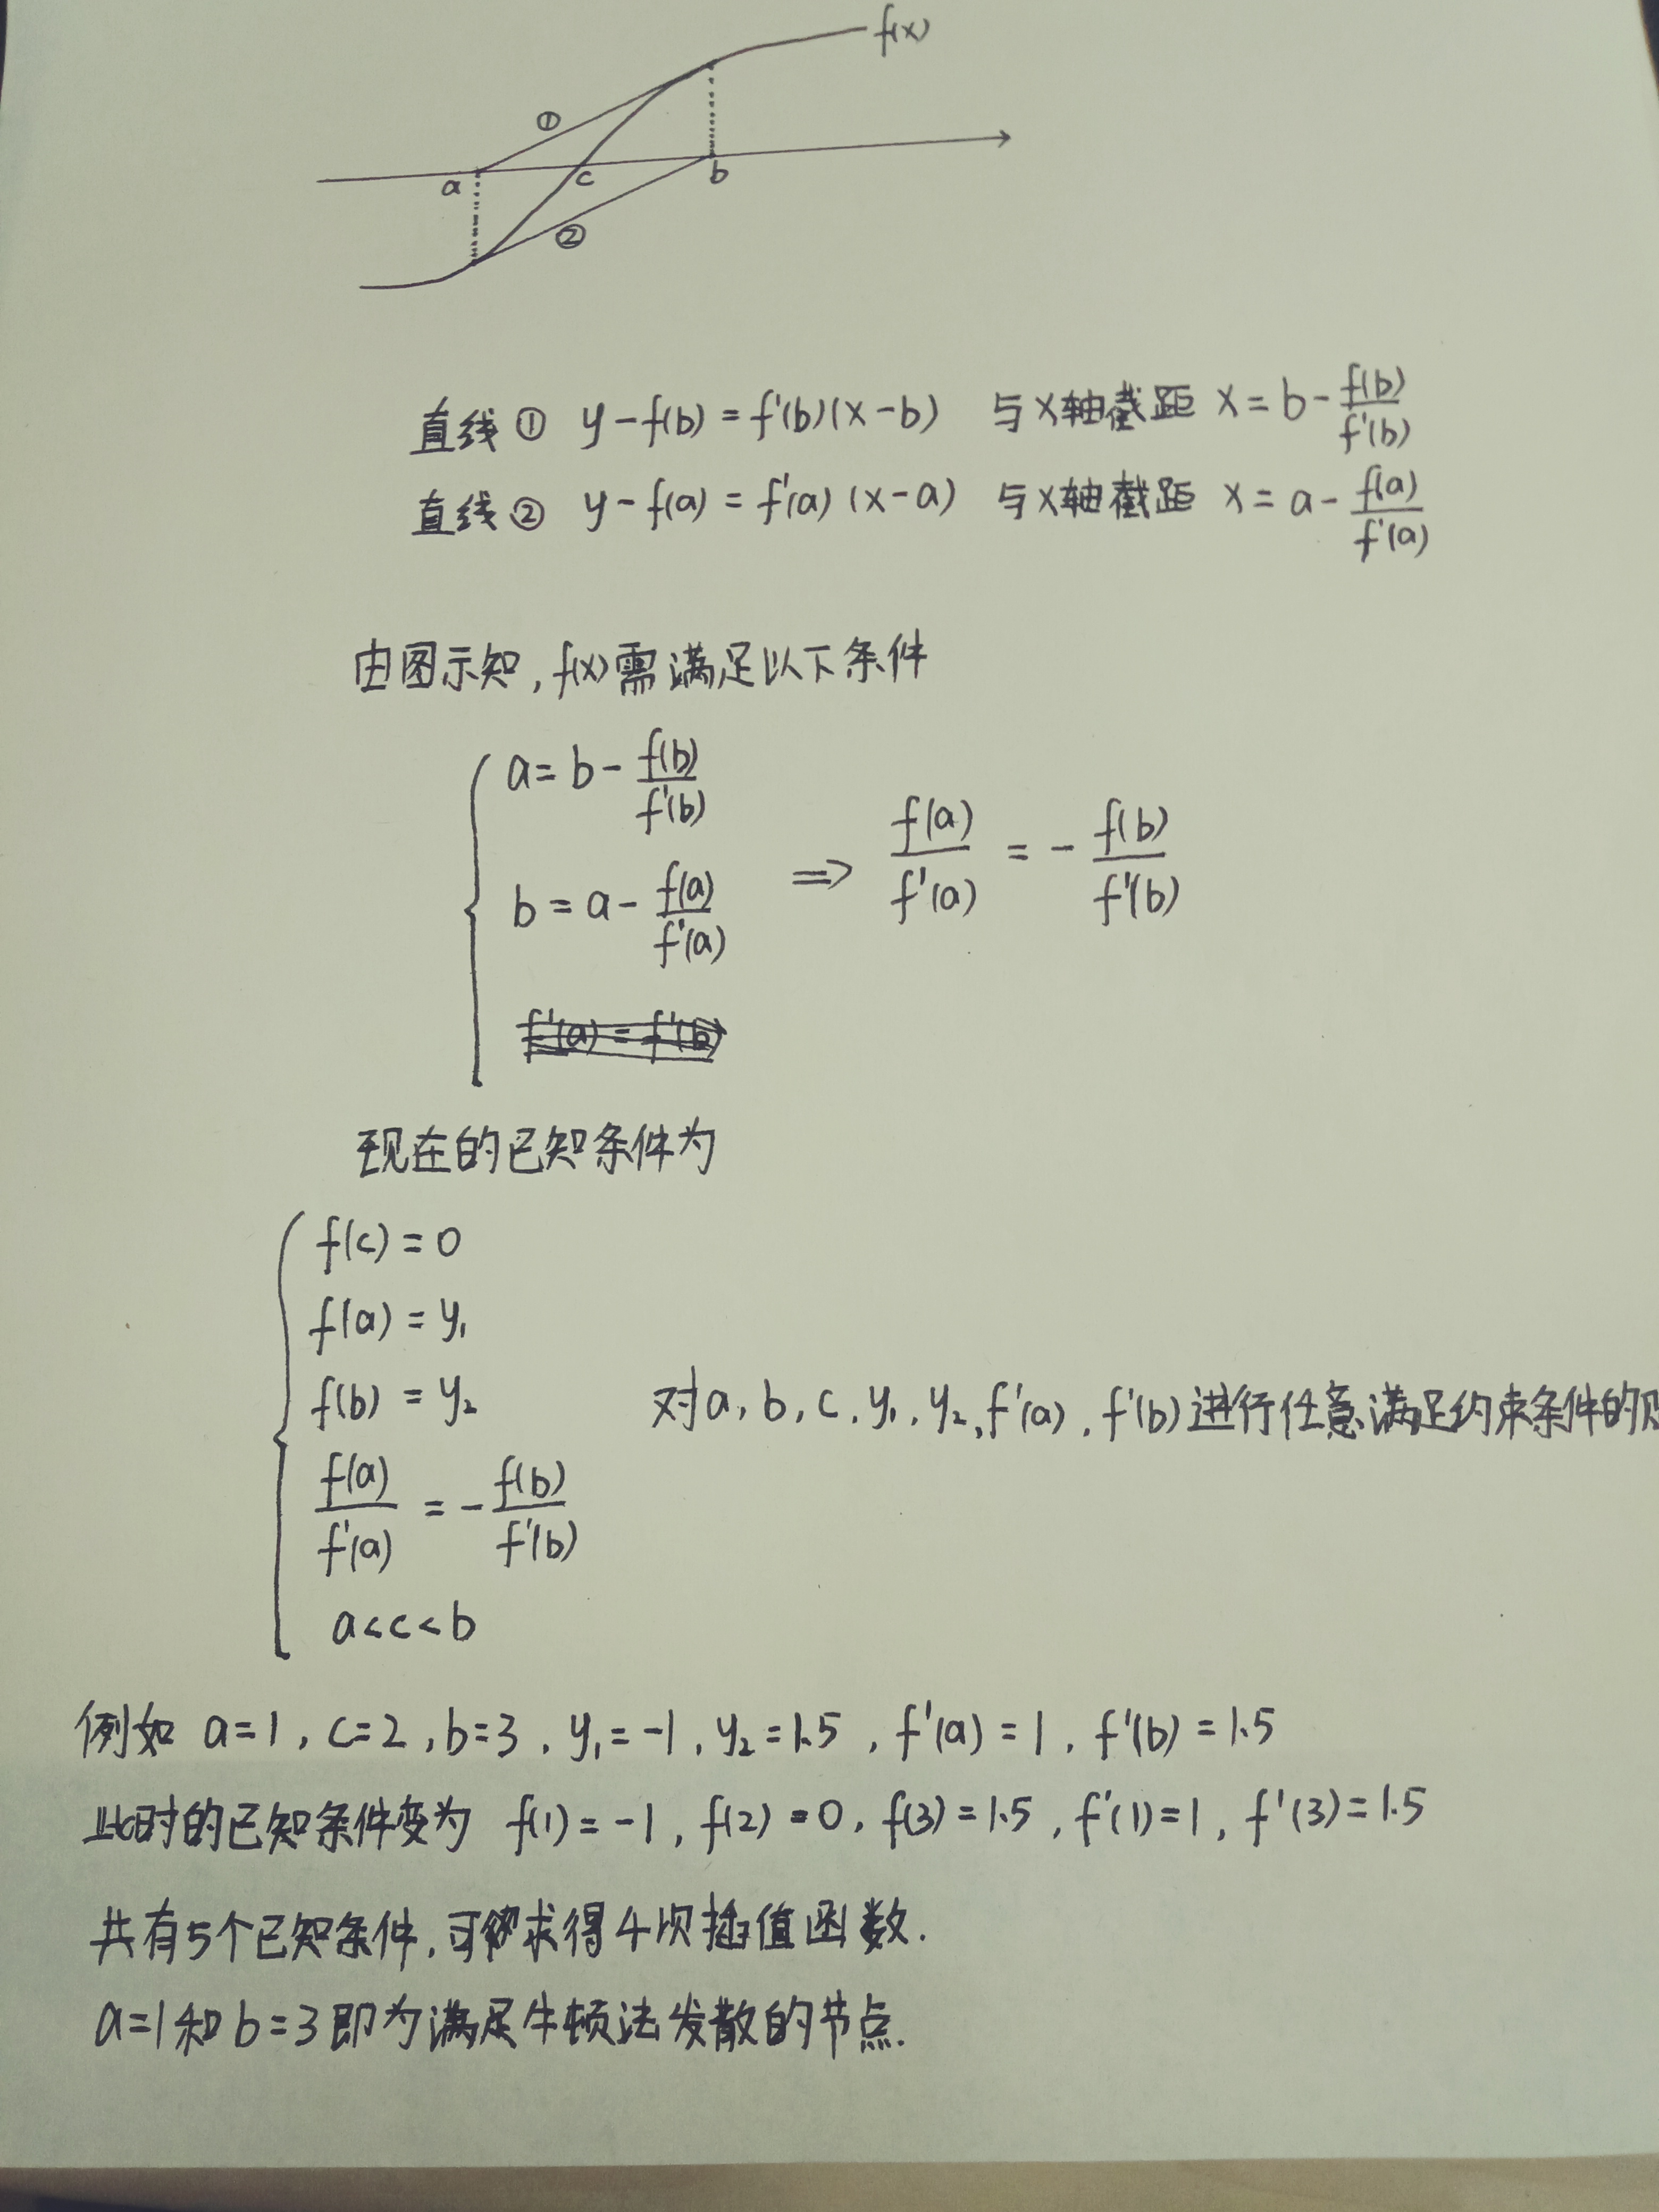 f(x)
①
a c b
②
直线① y-f(b)=f'(b)(x-b) 与x轴截距 x=b-f(b)/f'(b)
直线② y-f(a)=f'(a)(x-a) 与x轴截距 x=a-f(a)/f'(a)
由图示知,f(x)需满足以下条件
a=b-f(b)/f'(b)
b=a-f(a)/f'(a) ⇒ f(a)/f'(a)=-f(b)/f'(b)
f'(a)=f'(b)
现在的已知条件为
f(c)=0
f(a)=y₁
f(b)=y₂ 对a,b,c,y₁,y₂,f'(a),f'(b)进行任意满足约束条件的
f(a)/f'(a)=-f(b)/f'(b)
a<c<b
例如 a=1,c=2,b=3,y₁=-1,y₂=1.5,f'(a)=1,f'(b)=1.5
此时的已知条件变为 f(1)=-1,f(2)=0,f(3)=1.5,f'(1)=1,f'(3)=1.5
共有5个已知条件,可求得4次插值函数.
a=1和b=3即为满足牛顿法发散的节点.